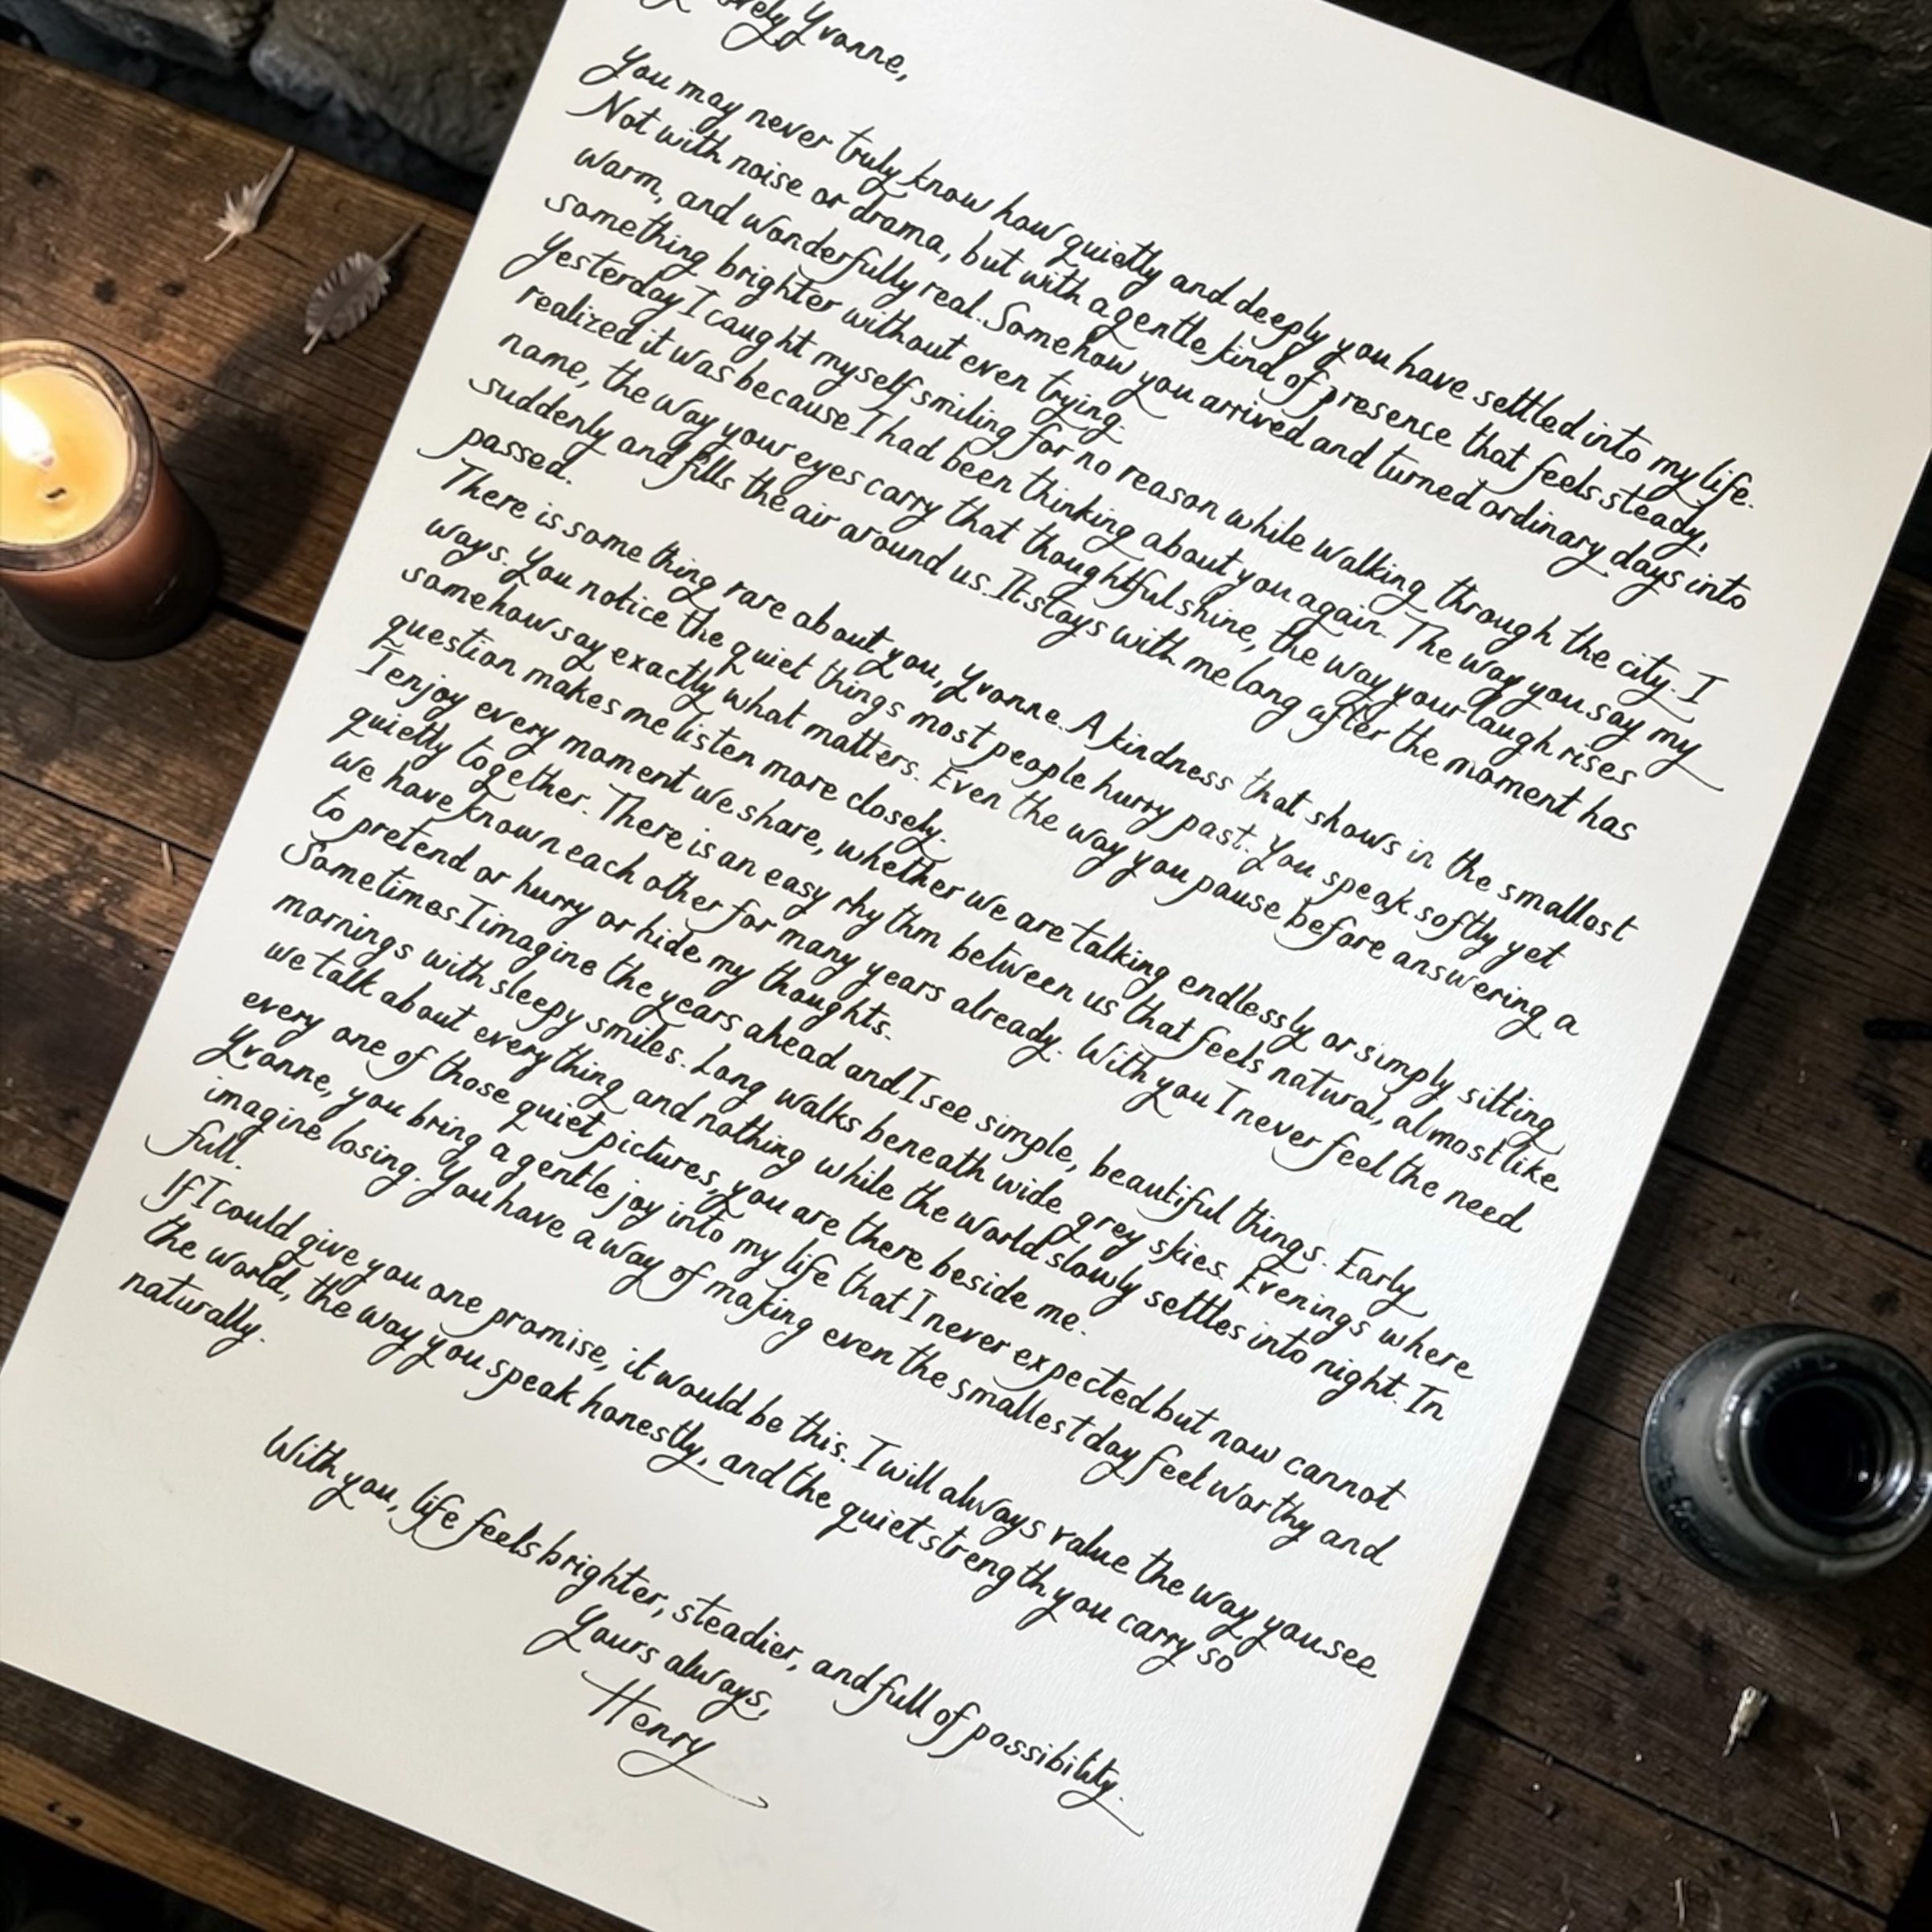 lovely Yvonne,
You may never truly know how quietly and deeply you have settled into my life.
Not with noise or drama, but with a gentle kind of presence that feels steady,
warm, and wonderfully real. Somehow you arrived and turned ordinary days into
something brighter without even trying.
Yesterday I caught myself smiling for no reason while walking through the city. I
realized it was because I had been thinking about you again. The way you say my
name, the way your eyes carry that thoughtful shine, the way your laugh rises
suddenly and fills the air around us. It stays with me long after the moment has
passed.
There is something rare about you, Yvonne. A kindness that shows in the smallest
ways. You notice the quiet things most people hurry past. You speak softly yet
somehow say exactly what matters. Even the way you pause before answering a
question makes me listen more closely.
I enjoy every moment we share, whether we are talking endlessly or simply sitting
quietly together. There is an easy rhythm between us that feels natural, almost like
we have known each other for many years already. With you I never feel the need
to pretend or hurry or hide my thoughts.
Sometimes I imagine the years ahead and I see simple, beautiful things. Early
mornings with sleepy smiles. Long walks beneath wide grey skies. Evenings where
we talk about everything and nothing while the world slowly settles into night. In
every one of those quiet pictures, you are there beside me.
Yvonne, you bring a gentle joy into my life that I never expected but now cannot
imagine losing. You have a way of making even the smallest day feel worthy and
full.
If I could give you one promise, it would be this. I will always value the way you see
the world, the way you speak honestly, and the quiet strength you carry so
naturally.
With you, life feels brighter, steadier, and full of possibility.
Yours always,
Henry